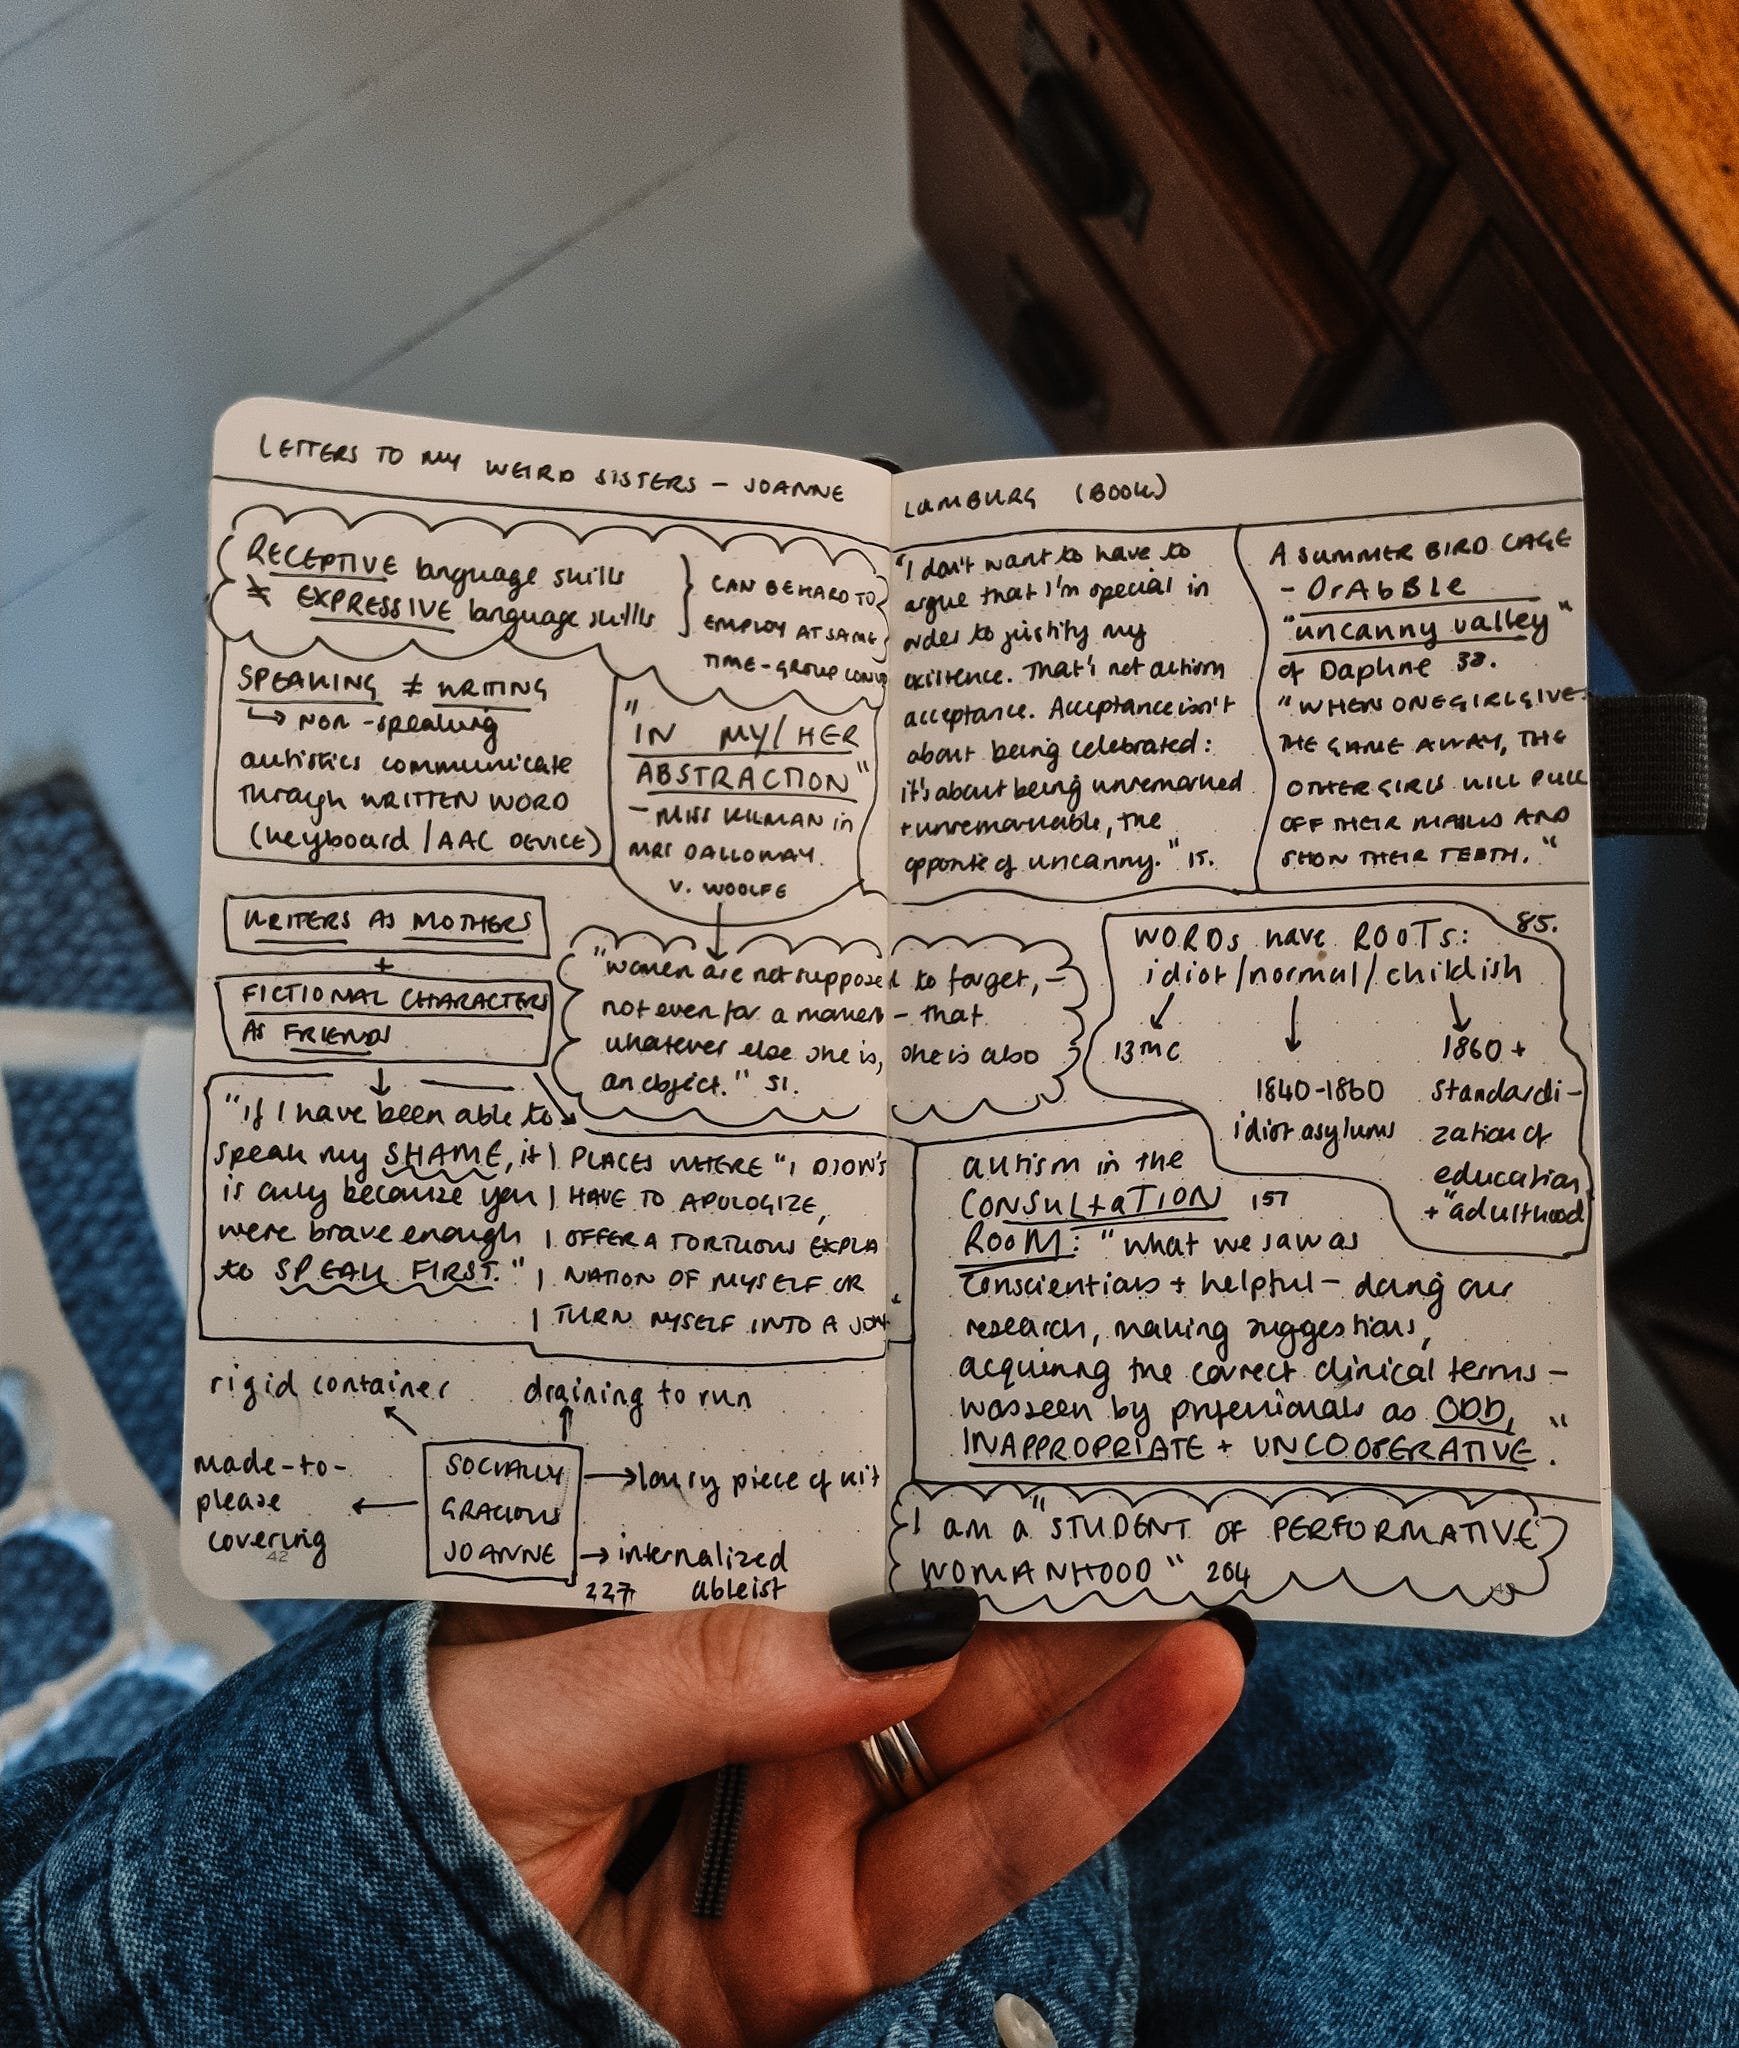 LETTERS TO MY WEIRD SISTERS - JOANNE
LAMBURG (BOOK)
RECEPTIVE language skills
≠ EXPRESSIVE language skills
CAN BE HARD TO
EMPLOY AT SAME
TIME - GROUP CONVO
SPEAKING ≠ WRITING
↳ non-speaking
autistics communicate
through WRITTEN WORD
(keyboard / AAC DEVICE)
"
IN MY/HER
ABSTRACTION"
- MISS KILMAN in
MRS DALLOWAY.
V. WOOLFE
WRITERS AS MOTHERS
+
FICTIONAL CHARACTERS
AS FRIENDS
"women are not supposed to forget, -
not even for a moment - that
whatever else she is, she is also
an object." 51.
"if I have been able to
speak my SHAME, it
is only because you
were brave enough
to SPEAK FIRST."
PLACES WHERE "I DIDN'T
HAVE TO APOLOGIZE,
OFFER A TORTUOUS EXPLA
NATION OF MYSELF OR
TURN MYSELF INTO A
rigid container
draining to run
made-to-
please
covering
SOCIALLY
GRACIOUS
JOANNE
→ lousy piece of kit
→ internalized
227 ableist
42
"I don't want to have to
argue that I'm special in
order to justify my
existence. That's not autism
acceptance. Acceptance isn't
about being celebrated:
it's about being unremarked
+ unremarkable, the
opposite of uncanny." 15.
A SUMMER BIRD CAGE
- DrAbBle
"uncanny valley"
of Daphne 38.
"WHEN ONE GIRL GIVES
THE GAME AWAY, THE
OTHER GIRLS WILL PULL
OFF THEIR MASKS AND
SHOW THEIR TEETH."
85.
WORDs have ROOTS:
idiot/normal/childish
13thC
1840-1860
idiot asylums
1860+
standardi-
zation of
education
+ "adulthood
autism in the
CONSULtaTION 157
ROOM: "what we saw as
conscientious + helpful - doing our
research, making suggestions,
acquiring the correct clinical terms -
was seen by professionals as ODD,
INAPPROPRIATE + UNCOOPERATIVE."
I am a "STUDENT OF PERFORMATIVE
WOMANHOOD" 204
43